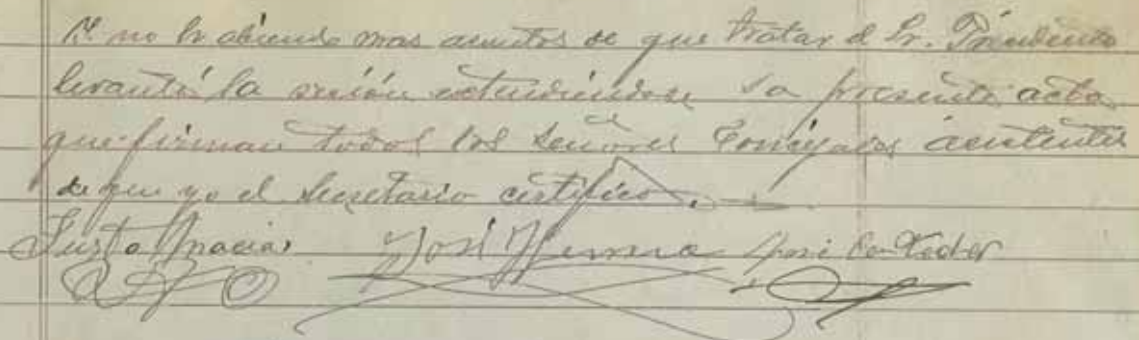 Y no habiendo mas asuntos de que tratar el Sr. Presidente
levantó la sesión extendiéndose la presente acta
que firman todos los señores Concejales asistentes
de que yo el Secretario certifico.
Justo Macias José José Contador